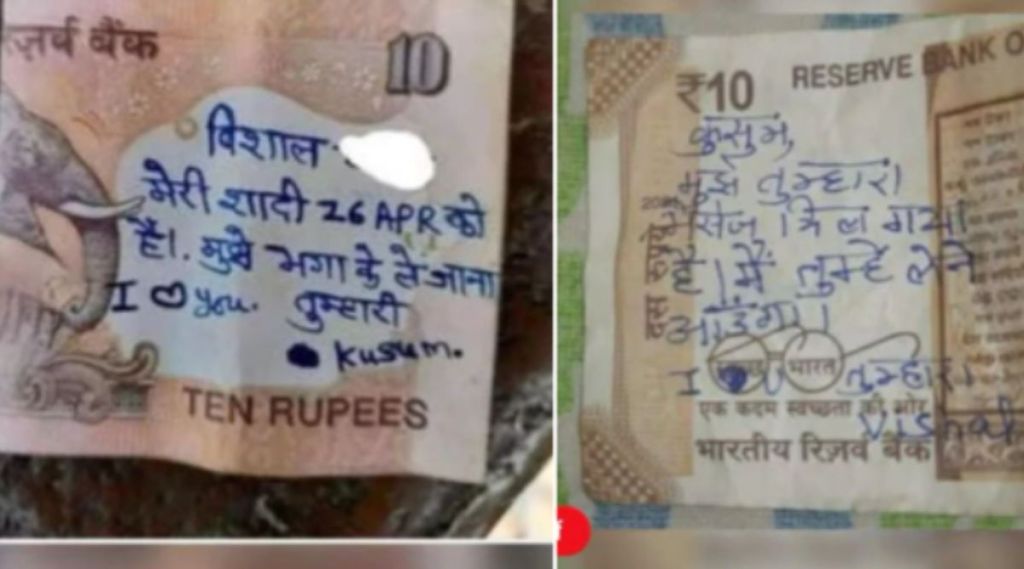 रिज़र्व बैंक
10
विशाल
मेरी शादी 26 APR को
है।. मुझे भगा के ले जाना
I ♡ you. तुम्हारी
kusum.
TEN RUPEES
₹10 RESERVE BANK O
कुसुम,
मुझे तुम्हारा
मेसेज मिल गया
है। में तुम्हे लेने
आउंगा।
दस रुपये
भारत
I U तुम्हारा
Vishal
एक कदम स्वच्छता की ओर
भारतीय रिज़र्व बैंक